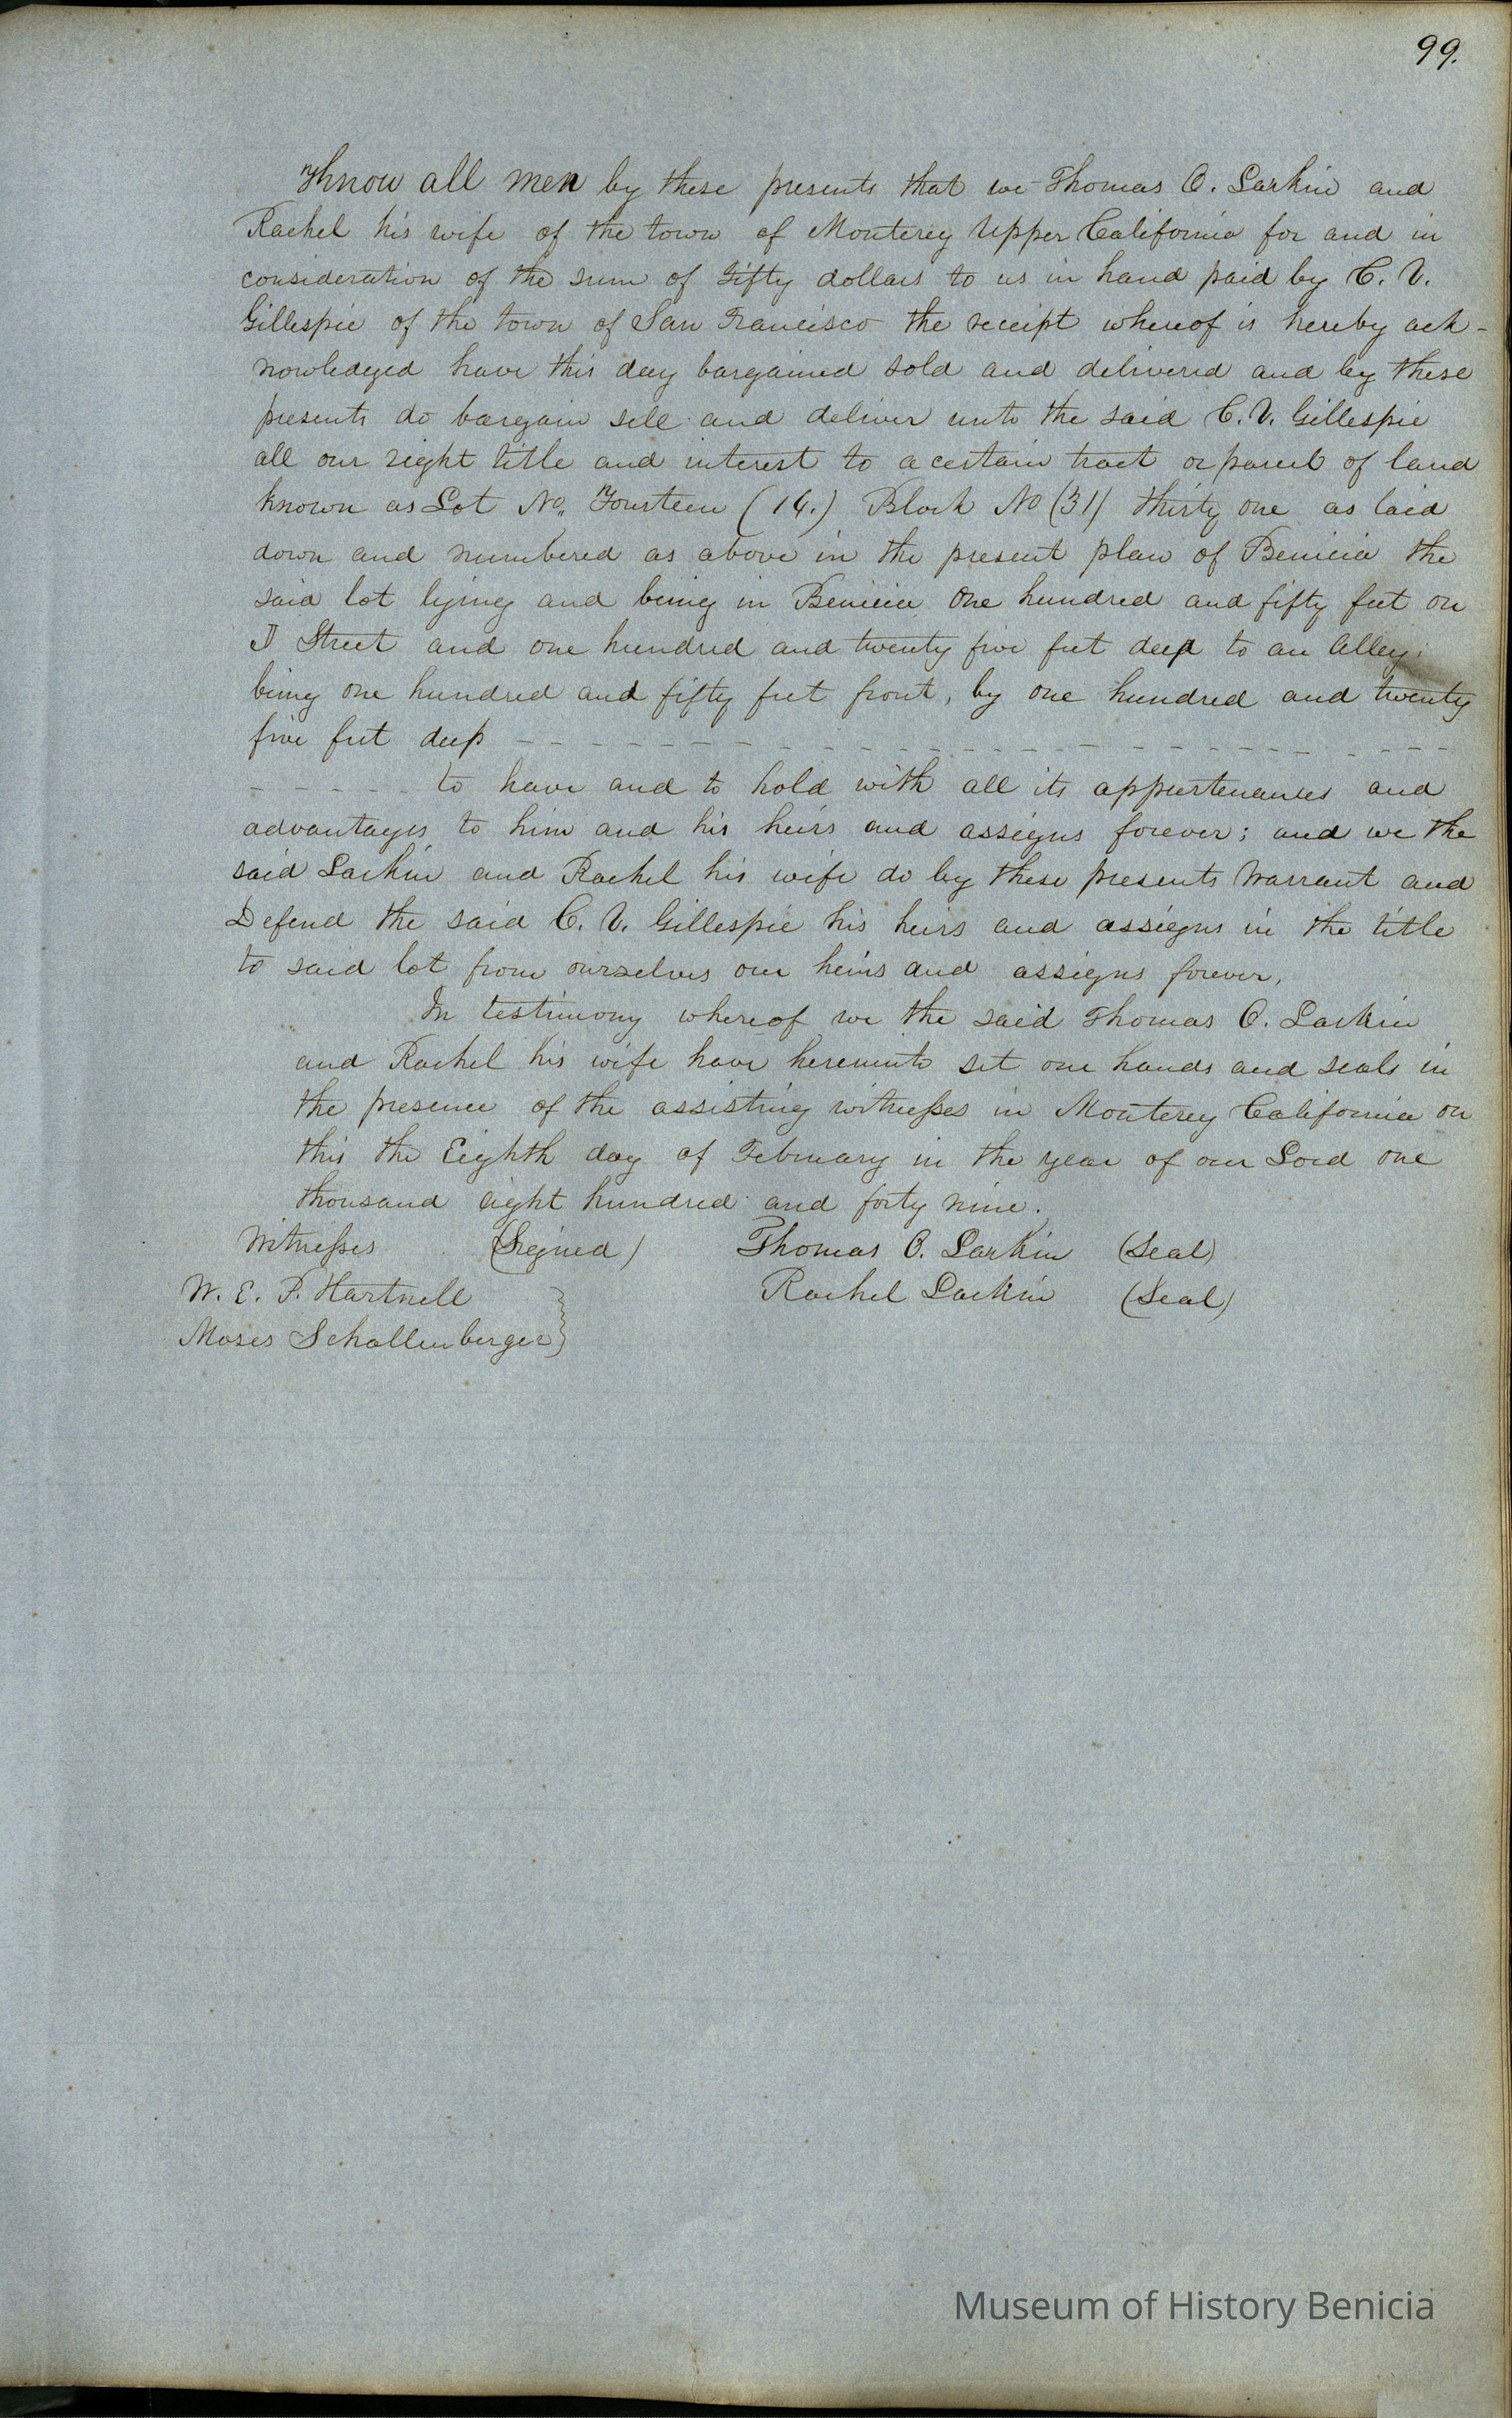 99.
Know all men by these presents that we Thomas O. Larkin and
Rachel his wife of the town of Monterey Upper California for and in
consideration of the sum of fifty dollars to us in hand paid by C. V.
Gillespie of the town of San Francisco the receipt whereof is hereby ack-
nowledged have this day bargained sold and delivered and by these
presents do bargain sell and deliver unto the said C. V. Gillespie
all our right title and interest to a certain tract or parcel of land
known as Lot No. Fourteen (14.) Block No (31) thirty one as laid
down and numbered as above in the present plan of Benicia the
said lot lying and being in Benicia one hundred and fifty feet on
Street and one hundred and twenty five feet deep to an Alley;
being one hundred and fifty feet front, by one hundred and twenty
five feet deep - - - - - - - - - - - - - - - - - - - - - - - -
- - - - - to have and to hold with all its appurtenances and
advantages to him and his heirs and assigns forever; and we the
said Larkin and Rachel his wife do by these presents Warrant and
Defend the said C. V. Gillespie his heirs and assigns in the title
to said lot from ourselves our heirs and assigns forever,
In testimony whereof we the said Thomas O. Larkin
and Rachel his wife have hereunto set our hands and seals in
the presence of the assisting witnesses in Monterey California on
this the Eighth day of February in the year of our Lord one
thousand eight hundred and forty nine.
Witnesses (Signed) Thomas O. Larkin (Seal)
W. E. P. Hartnell Rachel Larkin (Seal)
Moses Schallenberger
Museum of History Benicia